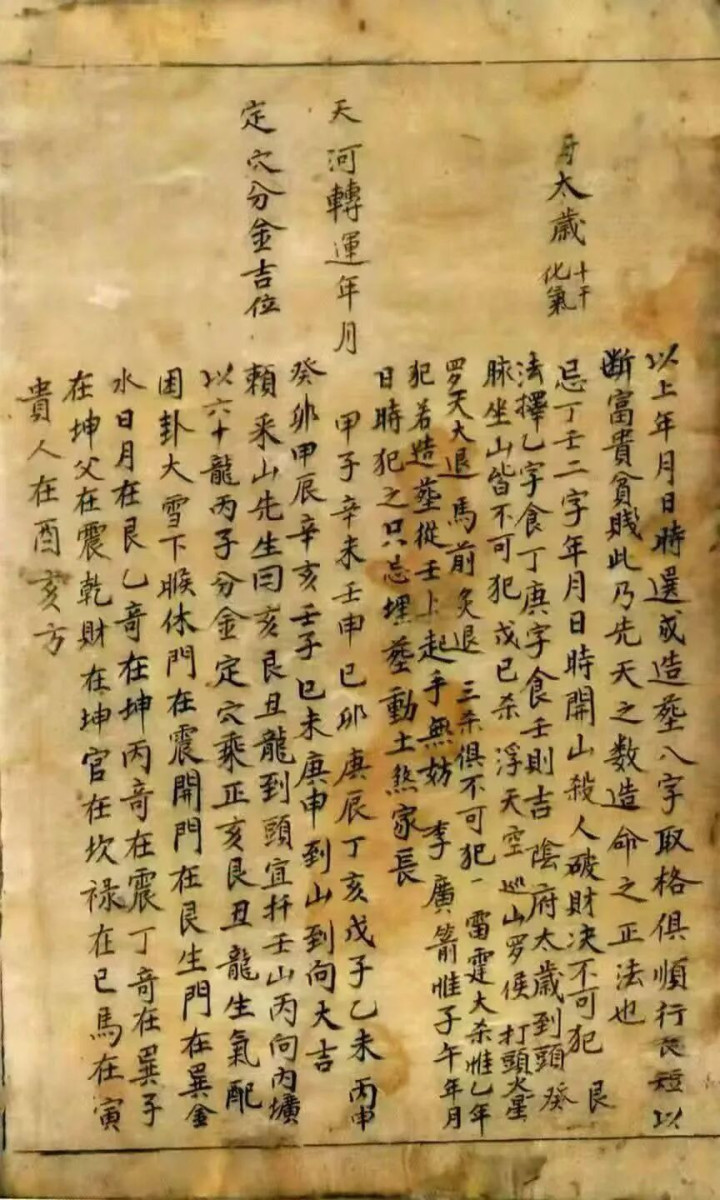 以上年月日時選或造塟八字取格俱順行長短以
断富貴貧賤此乃先天之数造命之正法也
太歲十干化氣
忌丁壬二字年月日時開山殺人破財决不可犯 艮
法擇乙字食丁庚字食壬則吉 陰府太歲到頭 癸
脉坐山皆不可犯 戊已杀 浮天空 巡山罗侯 打頭火星
罗天大退 馬前炙退 三杀俱不可犯一 雷霆大杀惟乙年
犯若造塟從壬上起手無妨 李廣箭惟子午年月
日時犯之只忌埋塟動土煞家長
天河轉運年月
甲子辛未壬申已卯庚辰丁亥戊子乙未丙申
癸卯甲辰辛亥壬子已未庚申到山到向大吉
定穴分金吉位
賴釆山先生曰亥艮丑龍到頭宜扦壬山丙向内壙
以六十龍丙子分金定穴乘正亥艮丑龍生氣配
困卦大雪下睺休門在震開門在艮生門在巽金
水日月在艮乙竒在坤丙竒在震丁竒在巽子
在坤父在震乾財在坤官在坎禄在巳馬在寅
貴人在酉亥方